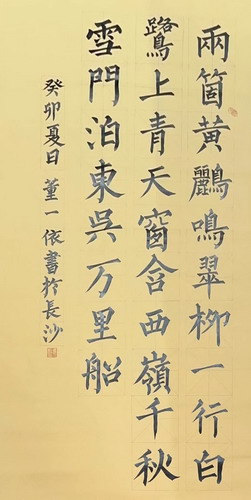 兩箇黃鸝鳴翠柳一行白
鷺上青天窗含西嶺千秋
雪門泊東吳万里船
癸卯夏日董一依書於長沙